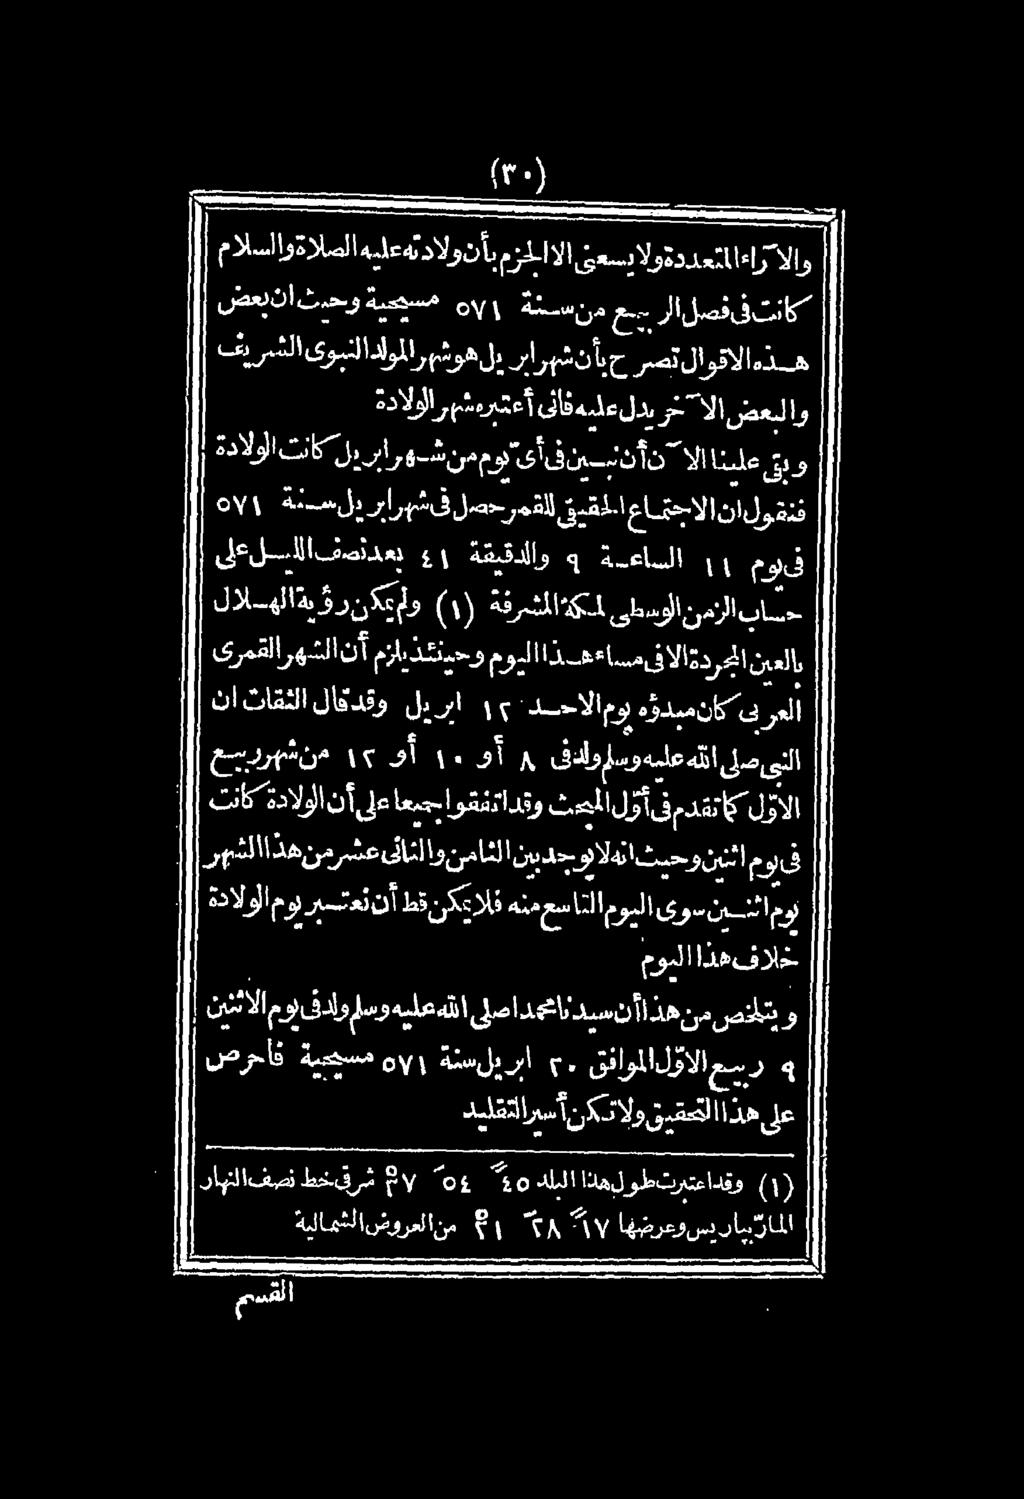 (٣٠)
والآراء المتعددة ولا يسعنى الا الجزم بأن ولادته عليه الصلاة والسلام
كانت فى فصل الربيع من سنة ٥٧١ مسيحية وحيث ان بعض
هذه الاقوال تصرح بأن شهر ابريل هو شهر المولد النبوى الشريف
والبعض الآخر يدل عليه فانى أعتبره شهر الولادة
وبقى علينا الآن أن نبين فى أى يوم من شهر ابريل كانت الولادة
فنقول ان الاجتماع الحقيقى للقمر حصل فى شهر ابريل سنة ٥٧١
فى يوم ١١ الساعة ٩ والدقيقة ٤١ بعد نصف الليل على
حساب الزمن الوسطى لمكة المشرفة (١) ولم يمكن رؤية الهلال
بالعين المجردة الا فى مساء هذا اليوم وحينئذ يلزم أن الشهر القمرى
العربى كان مبدؤه يوم الاحد ١٢ ابريل وقد قال الثقات ان
النبى صلى الله عليه وسلم ولد فى ٨ أو ١٠ أو ١٢ من شهر ربيع
الاوّل كما تقدم فى أوّل المبحث وقد اتفقوا جميعا على أن الولادة كانت
فى يوم اثنين وحيث انه لا يوجد بين الثامن والثانى عشر من هذا الشهر
يوم اثنين سوى اليوم التاسع منه فلا يمكن قط أن نعتبر يوم الولادة
خلاف هذا اليوم
ويتلخص من هذا أن سيدنا محمدا صلى الله عليه وسلم ولد فى يوم الاثنين
٩ ربيع الاوّل الموافق ٢٠ ابريل سنة ٥٧١ مسيحية فاحرص
على هذا التحقيق ولا تكن أسير التقليد
(١) وقد اعتبرت طول هذا البلد ٤٥ً ٥٤َ ٣٧ْ شرقى خط نصف النهار
المارّ بباريس وعرضها ١٧ً ٢٨َ ٢١ْ من العروض الشمالية
القسم